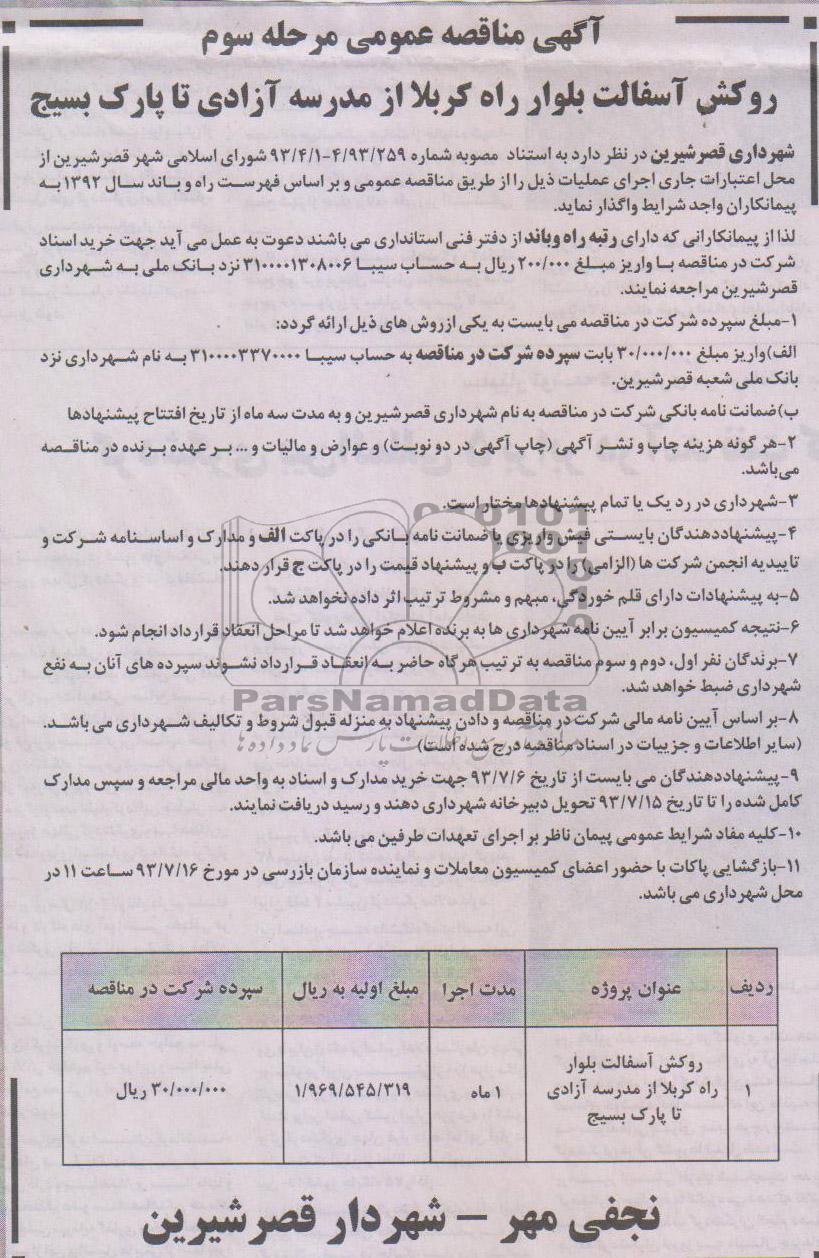 آگهی مناقصه عمومی مرحله سوم
روکش آسفالت بلوار راه کربلا از مدرسه آزادی تا پارک بسیج
شهرداری قصرشیرین در نظر دارد به استناد مصوبه شماره ۴/۹۳/۲۵۹-۹۳/۴/۱ شورای اسلامی شهر قصرشیرین از
محل اعتبارات جاری اجرای عملیات ذیل را از طریق مناقصه عمومی و بر اساس فهرست راه و باند سال ۱۳۹۲ به
پیمانکاران واجد شرایط واگذار نماید.
لذا از پیمانکارانی که دارای رتبه راه وباند از دفتر فنی استانداری می باشند دعوت به عمل می آید جهت خرید اسناد
شرکت در مناقصه با واریز مبلغ ۲۰۰/۰۰۰ ریال به حساب سیبا ۳۱۰۰۰۰۱۳۰۸۰۰۶ نزد بانک ملی به شهرداری
قصرشیرین مراجعه نمایند.
۱-مبلغ سپرده شرکت در مناقصه می بایست به یکی ازروش های ذیل ارائه گردد:
الف)واریز مبلغ ۳۰/۰۰۰/۰۰۰ بابت سپرده شرکت در مناقصه به حساب سیبا ۳۱۰۰۰۰۳۳۷۰۰۰۰ به نام شهرداری نزد
بانک ملی شعبه قصرشیرین.
ب)ضمانت نامه بانکی شرکت در مناقصه به نام شهرداری قصرشیرین و به مدت سه ماه از تاریخ افتتاح پیشنهادها
۲-هر گونه هزینه چاپ و نشر آگهی (چاپ آگهی در دو نوبت) و عوارض و مالیات و ... بر عهده برنده در مناقصه
می‌باشد.
۳-شهرداری در رد یک یا تمام پیشنهادها مختار است.
۴-پیشنهاددهندگان بایستی فیش واریزی یا ضمانت نامه بانکی را در پاکت الف و مدارک و اساسنامه شرکت و
تاییدیه انجمن شرکت ها (الزامی) را در پاکت ب و پیشنهاد قیمت را در پاکت ج قرار دهند.
۵-به پیشنهادات دارای قلم خوردگی، مبهم و مشروط ترتیب اثر داده نخواهد شد.
۶-نتیجه کمیسیون برابر آیین نامه شهرداری ها به برنده اعلام خواهد شد تا مراحل انعقاد قرارداد انجام شود.
۷-برندگان نفر اول، دوم و سوم مناقصه به ترتیب هرگاه حاضر به انعقاد قرارداد نشوند سپرده های آنان به نفع
شهرداری ضبط خواهد شد.
ParsNamadData
۸-بر اساس آیین نامه مالی شرکت در مناقصه و دادن پیشنهاد به منزله قبول شروط و تکالیف شهرداری می باشد.
(سایر اطلاعات و جزییات در اسناد مناقصه درج شده است)
۹-پیشنهاددهندگان می بایست از تاریخ ۹۳/۷/۶ جهت خرید مدارک و اسناد به واحد مالی مراجعه و سپس مدارک
کامل شده را تا تاریخ ۹۳/۷/۱۵ تحویل دبیرخانه شهرداری دهند و رسید دریافت نمایند.
۱۰-کلیه مفاد شرایط عمومی پیمان ناظر بر اجرای تعهدات طرفین می باشد.
۱۱-بازگشایی پاکات با حضور اعضای کمیسیون معاملات و نماینده سازمان بازرسی در مورخ ۹۳/۷/۱۶ ساعت ۱۱ در
محل شهرداری می باشد.
ردیف عنوان پروژه مدت اجرا مبلغ اولیه به ریال سپرده شرکت در مناقصه
روکش آسفالت بلوار
۱ راه کربلا از مدرسه آزادی ۱ ماه ۱/۹۶۹/۵۴۵/۳۱۹ ۳۰/۰۰۰/۰۰۰ ریال
تا پارک بسیج
نجفی مهر - شهردار قصرشیرین